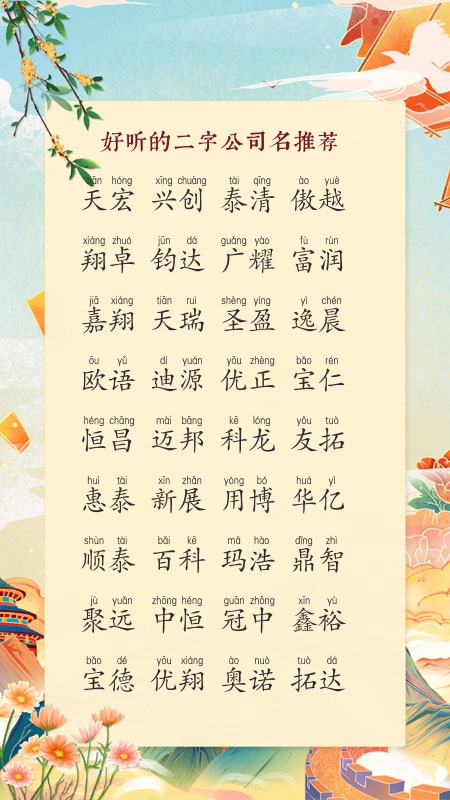 好听的二字公司名推荐
tiān hóng xīng chuàng tài qīng ào yuè
天宏 兴创 泰清 傲越
xiáng zhuó jūn dá guǎng yào fù rùn
翔卓 钧达 广耀 富润
jiā xiáng tiān ruì shèng yíng yì chén
嘉翔 天瑞 圣盈 逸晨
ōu yǔ dí yuán yōu zhèng bǎo rén
欧语 迪源 优正 宝仁
héng chāng mài bāng kē lóng yǒu tuò
恒昌 迈邦 科龙 友拓
huì tài xīn zhǎn yòng bó huá yì
惠泰 新展 用博 华亿
shùn tài bǎi kē mǎ hào dǐng zhì
顺泰 百科 玛浩 鼎智
jù yuǎn zhōng héng guān zhōng xīn yù
聚远 中恒 冠中 鑫裕
bǎo dé yōu xiáng ào nuò tuò dá
宝德 优翔 奥诺 拓达